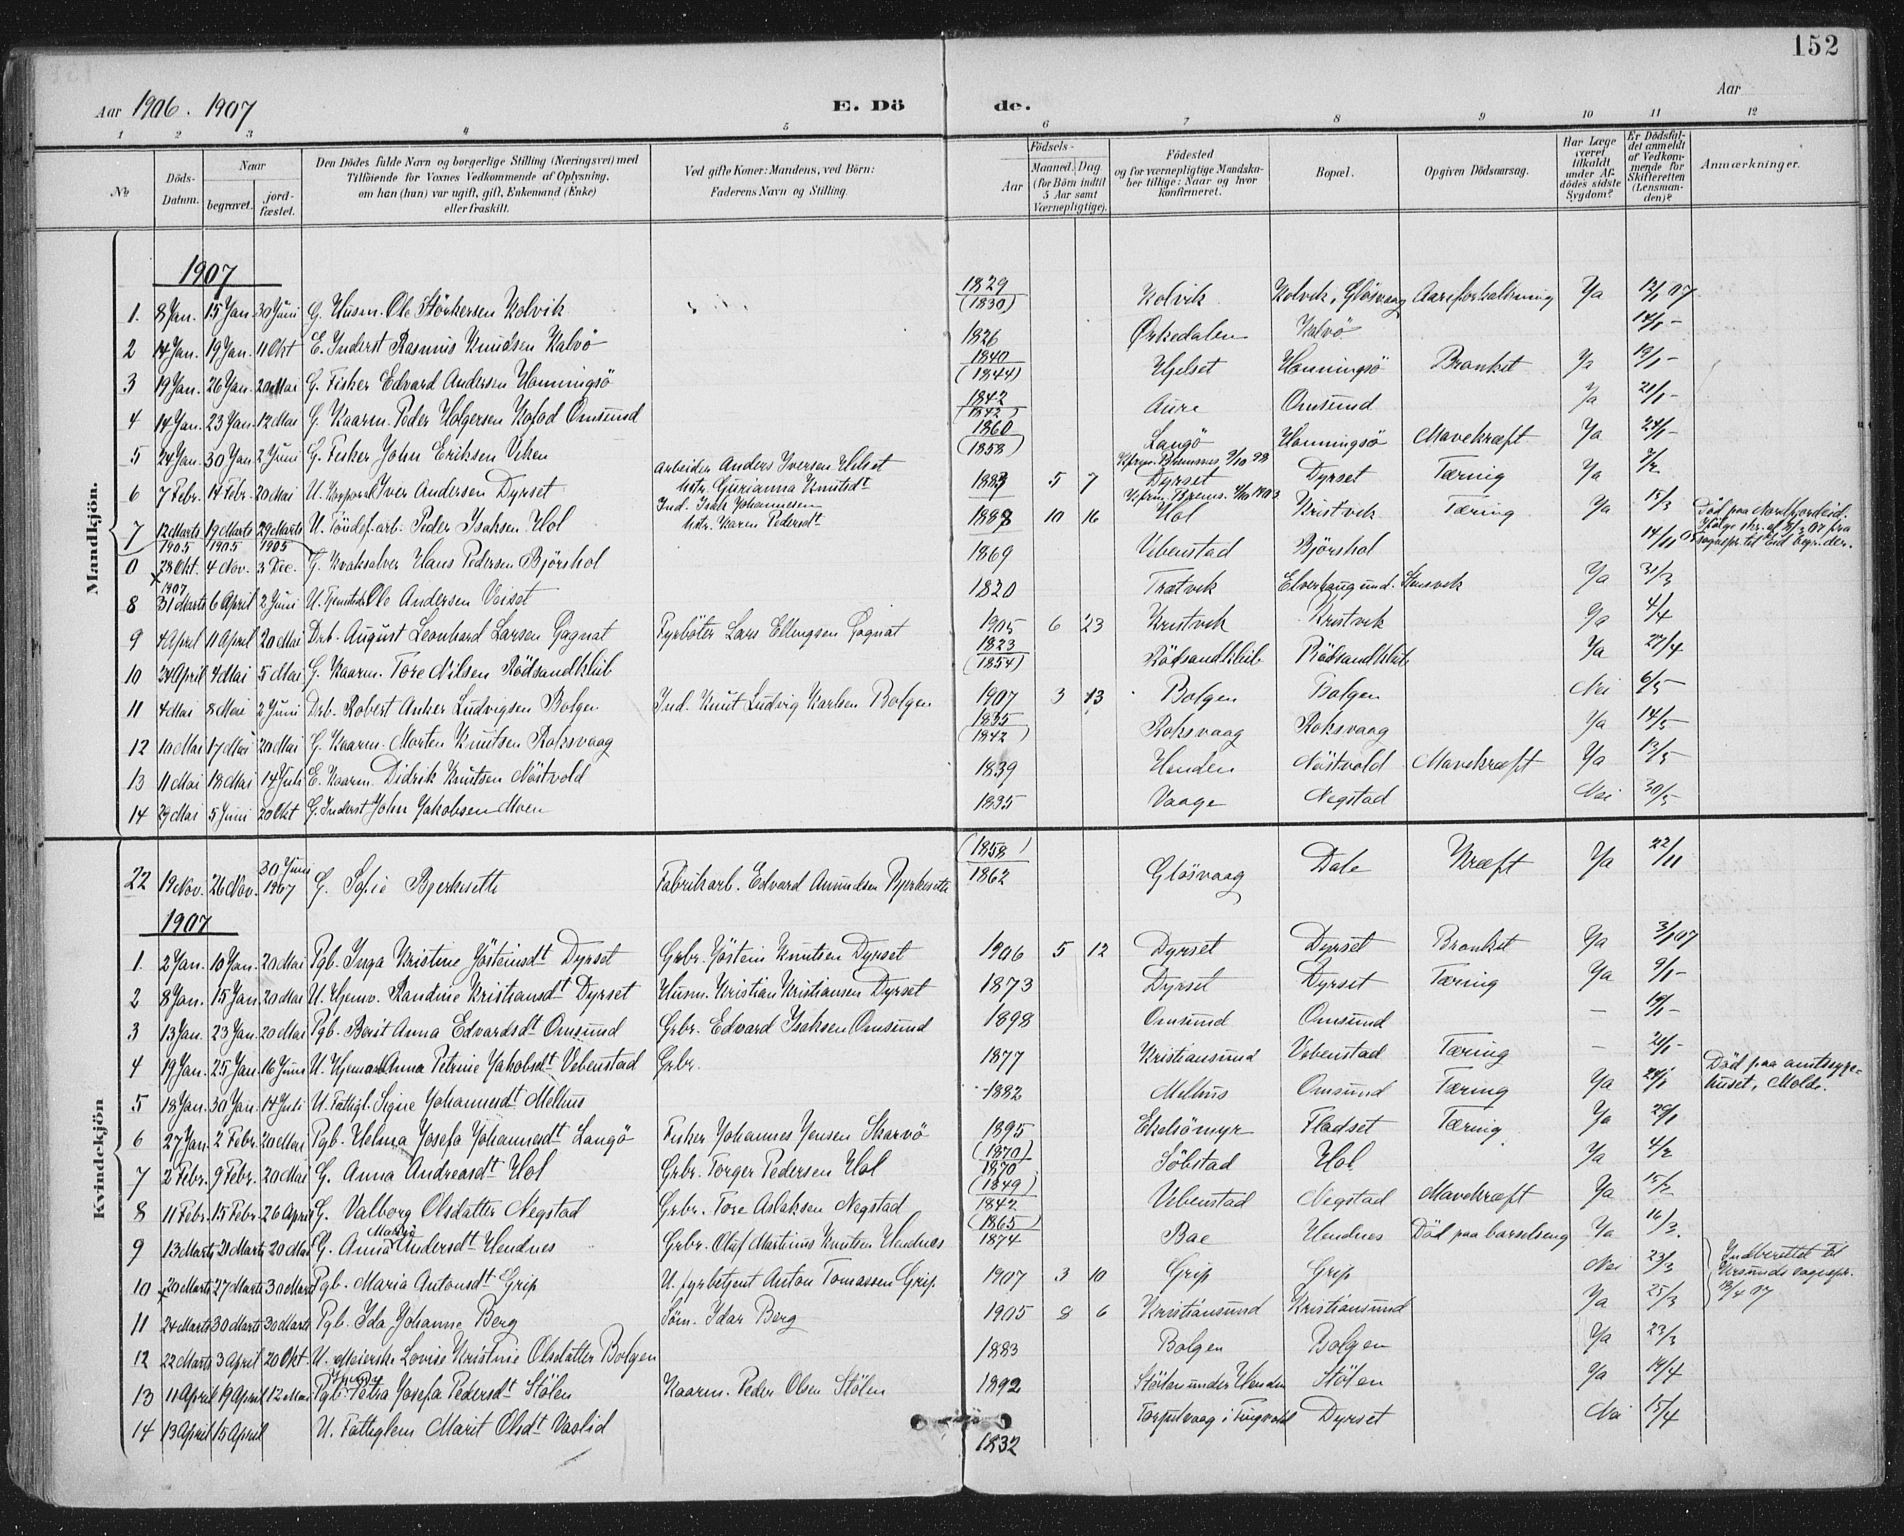 152
Aar 1906. 1907
E. Dö de.
Aar
1 2 3 4 5 6 7 8 9 10 11 12
No
Döds-Datum.
Naar
begravet.
jord-fæstet.
Den Dödes fulde Navn og borgerlige Stilling (Næringsvei) med Tilföiende for Voxnes Vedkommende af Oplysning, om han (hun) var ugift, gift, Enkemand (Enke) eller fraskilt.
Ved gifte Koner: Mandens, ved Börn: Faderens Navn og Stilling.
Födsels-
Aar
Maaned. Dag
(for Börn indtil 5 Aar samt Værnepligtige).
Födested og for værnepligtige Mandskaber tillige: Naar og hvor konfirmeret.
Bopæl.
Opgiven Dödsaarsag.
Har Læge været tilkaldt under Afdödes sidste Sygdom?
Er Dödsfaldet anmeldt af Vedkommende for Skifteretten (Lensmanden)?
Anmærkninger.
Mandkjön.
1907
1. 8 Jan. 15 Jan. 30 Juni G. Husm. Ole Störkersen Kolvik 1829 (1830) Kolvik Kolvik, Glösvaag Aareforkalkning Ja 12/1 07
2 14 Jan. 19 Jan. 11 Okt E. Inderst Rasmus Knudsen Kalvö 1826 Ørkedalen Kalvö 14/1 -
3 19 Jan. 26 Jan. 20 Mai G. Fisker Edvard Andersen Honningsö 1840 (1844) Hjelset Honningsö Bronkit Ja 19/1 -
4 14 Jan. 23 Jan. 12 Mai G. Kaarm. Peder Holgersen Kofod Omsund 1842 (1842) Aure Omsund Ja 21/1 -
5 24 Jan. 30 Jan. 2 Juni G. Fisker John Eriksen Viken 1860 (1858) Langö Honningsö Mavekræft Ja 24/1 -
6 7 Febr. 14 Febr. 20 Mai U. Korporal Iver Andersen Dyrset Arbeider Anders Iversen Hustr. Gurianna Knutsdt 1883 5 7 Kfrm. Bremsnes 2/10 98 Dyrset Dyrset Tæring Ja
7 12 Marts 19 Marts 29 Marts U. Töndef.arb. Peder Isaksen Hol Ind. Isak Johannesen hstr. Karen Pedersdt 1888 10 16 Hol Kristvik Tæring Ja 15/3 Död paa
0 1905 28 Okt. 1905 4 Nov. 1905 3 Dec. G. Kvaksalver Hans Pedersen Björshol 1869 Vebenstad Björshol
8 1907 31 Marts 6 April 2 Juni U. Ole Andersen Veiset 1820 Trætvik Ja 31/3
9 4 April 11 April 20 Mai Drb. August Leonhard Larsen Gagnat Fyrböter Lars Ellingsen Gagnat 1905 6 23 Kristvik Kristvik Ja 4/4
10 24 April 4 Mai 5 Mai G. Kaarm. Tore Nilsen Rödsandklub 1823 (1854) Rödsandklub Rödsandklub Ja 27/4
11 4 Mai 8 Mai 2 Juni Drb. Robert Anker Ludvigsen Bolgen Ind. Knut Ludvig Karlsen Bolgen 1907 3 13 Bolgen Bolgen Nei 6/5
12 10 Mai 17 Mai 20 Mai G. Kaarm. Morten Knutsen Roksvaag 1835 (1842) Roksvaag Roksvaag Ja 14/5
13 11 Mai 18 Mai 14 Juli E. Kaarm. Didrik Knutsen Nöstvold 1839 Henden Nöstvold Mavekræft Ja 13/5
14 29 Mai 5 Juni 20 Okt G. Inderst John Jakobsen Moen 1835 Vaage Negstad Nei 30/5
Kvindekjön
22 19 Nov. 26 Nov. 30 Juni 1907 G. Sofie Bjerkesette Fabrikarb. Edvard Amundsen Bjerkesette (1858) 1862 Glösvaag Dale Kræft Ja 22/11
1907
1. 2 Jan. 10 Jan. 20 Mai Pgb. Inga Kristine Jösteinsdt Dyrset Grbr. Jöstein Knutsen Dyrset 1906 5 12 Dyrset Dyrset Bronkit Ja 3/1 07
2 8 Jan. 15 Jan. 20 Mai U. Hjemv. Randine Kristiansdt Dyrset Husm. Kristian Kristiansen Dyrset 1873 Dyrset Dyrset Tæring Ja 9/1 -
3 13 Jan. 23 Jan. 20 Mai Pgb. Berit Anna Edvardsdt Omsund Grbr. Edvard Isaksen Omsund 1898 Omsund Omsund - 19/1 -
4 19 Jan. 25 Jan. 16 Juni U. Anna Petrine Jakobsdt Vebenstad Grbr. 1877 Kristiansund Vebenstad Tæring - 21/1 -
5 18 Jan. 30 Jan. 14 Juli U. Fattigl. Signe Johannesdt Melhus 1882 Melhus Omsund Tæring Ja 24/1 Död paa amtssygehuset, Molde.
6 27 Jan. 2 Febr. 20 Mai Pgb. Helma Josefa Johannesdt Langö Fisker Johannes Jensen Skarvö 1895 Ekelsömyr Fladset Tæring Ja 29/1
7 2 Febr. 9 Febr. 20 Mai G. Anna Andreasdt Hol Grbr. Torger Pedersen Hol (1870) 1870 Söbstad Hol Ja 4/2
8 11 Febr. 15 Febr. 26 April G. Valborg Olsdatter Negstad Grbr. Tore Aslaksen Negstad (1849) 1842 Vebenstad Negstad Mavekræft Ja 15/2
9 13 Marts 21 Marts 20 Mai G. Anna Andersdt Hendnes Grbr. Oluf Martinus Knutsen Hendnes (1865) 1874 Bae Hendnes Död paa barselseng Ja 16/3
10 20 Marts 27 Marts 30 Marts Pgb. Maria Antonsdt Grip U. fyrbetjent Anton Tomassen Grip 1907 3 10 Grip Grip Nei 23/3 Indberettet til Kr.sunds sogepr. 13/4 07
11 24 Marts 30 Marts 30 Marts Pgb. Ida Johanne Berg Söm. Idar Berg 1905 8 6 Kristiansund Kristiansund Ja 25/3
12 22 Marts 3 April 20 Okt. U. Meierske Lovise Kristine Olsdatter Bolgen 1883 Bolgen Bolgen Ja 23/3
13 11 April 19 April 12 Mai Pgb. Petra Josefa Pedersdt Stölen Kaarm. Peder Olsen Stölen 1892 Stölen under Henden Stölen Ja 14/4
14 13 April 15 April U. Fattiglem Marit Olsdt Vaslid 1832 Torjulvaag i Tingvold Dyrset Nei 15/4